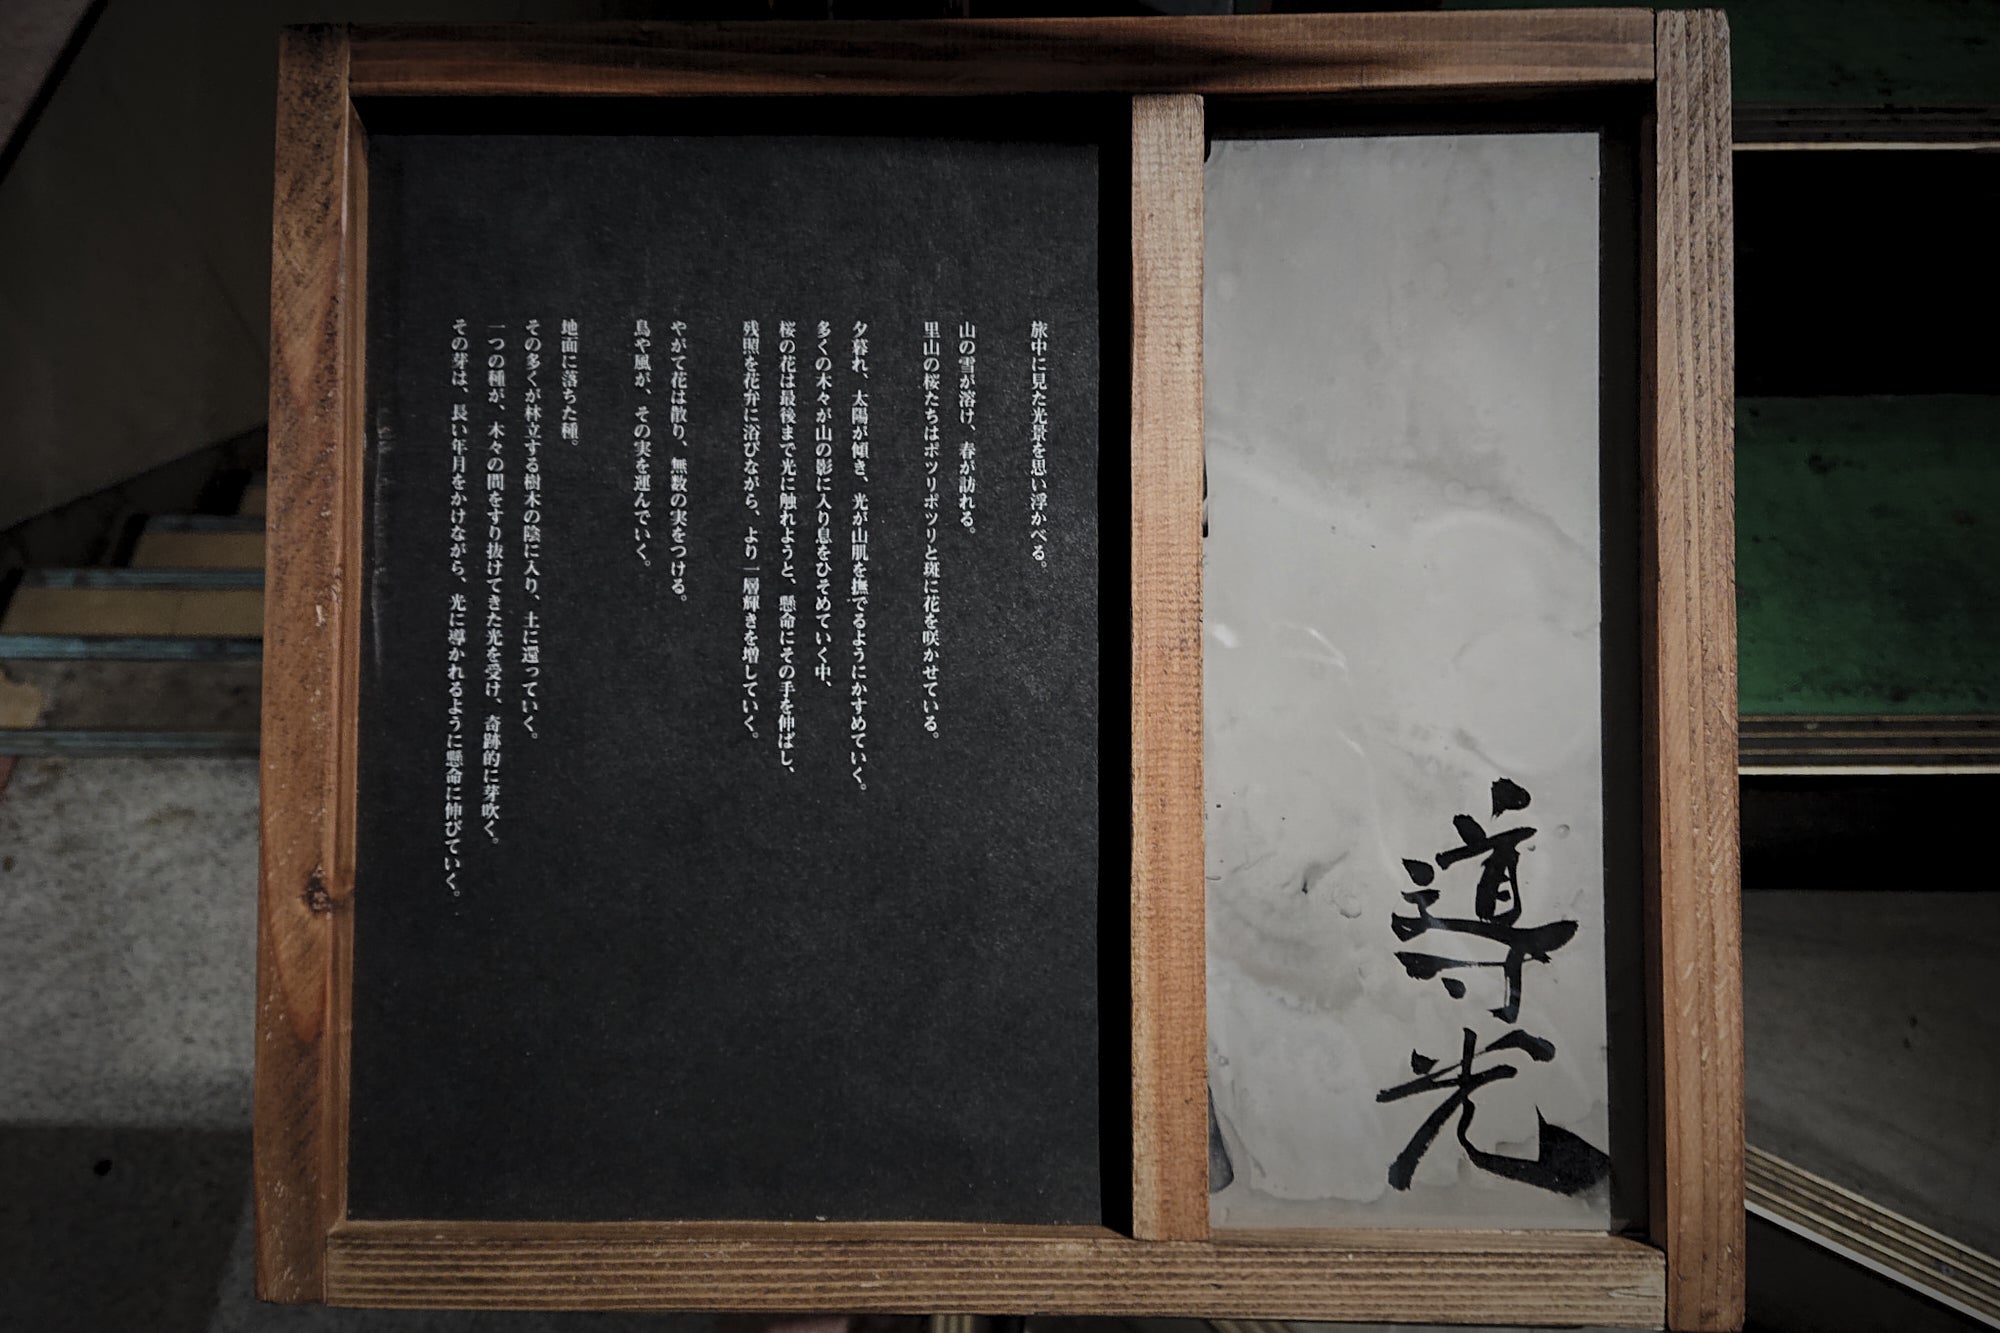 導光
旅中に見た光景を思い浮かべる。
山の雪が溶け、春が訪れる。
里山の桜たちはポツリポツリと斑に花を咲かせている。
夕暮れ、太陽が傾き、光が山肌を撫でるようにかすめていく。
多くの木々が山の影に入り息をひそめていく中、
桜の花は最後まで光に触れようと、懸命にその手を伸ばし、
残照を花弁に浴びながら、より一層輝きを増していく。
やがて花は散り、無数の実をつける。
鳥や風が、その実を運んでいく。
地面に落ちた種。
その多くが林立する樹木の陰に入り、土に還っていく。
一つの種が、木々の間をすり抜けてきた光を受け、奇跡的に芽吹く。
その芽は、長い年月をかけながら、光に導かれるように懸命に伸びていく。